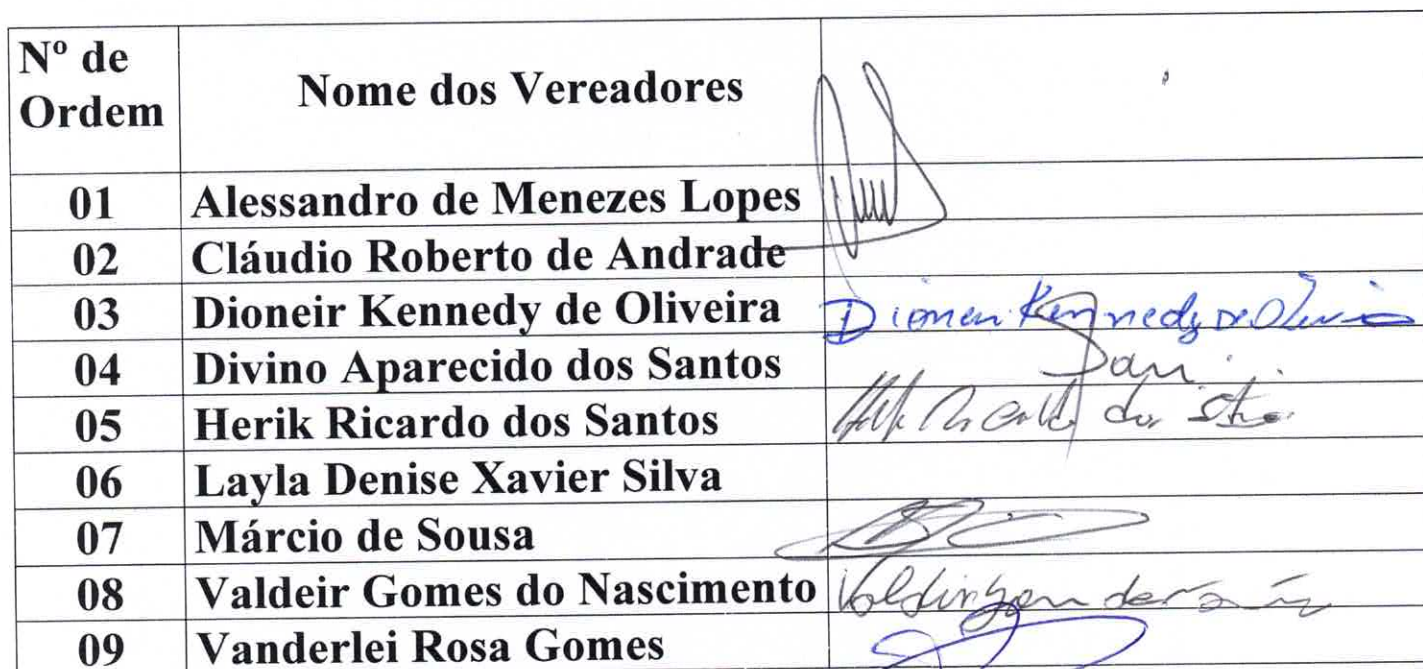 Nº de
Ordem
Nome dos Vereadores
01 Alessandro de Menezes Lopes
02 Cláudio Roberto de Andrade
03 Dioneir Kennedy de Oliveira Dioneir Kennedy de Oliveira
04 Divino Aparecido dos Santos
05 Herik Ricardo dos Santos
06 Layla Denise Xavier Silva
07 Márcio de Sousa
08 Valdeir Gomes do Nascimento
09 Vanderlei Rosa Gomes